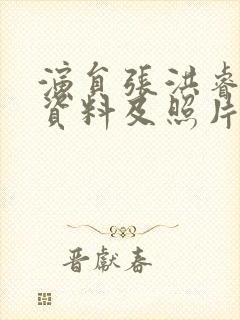 演員張洪睿
資料及照片
晋獻春